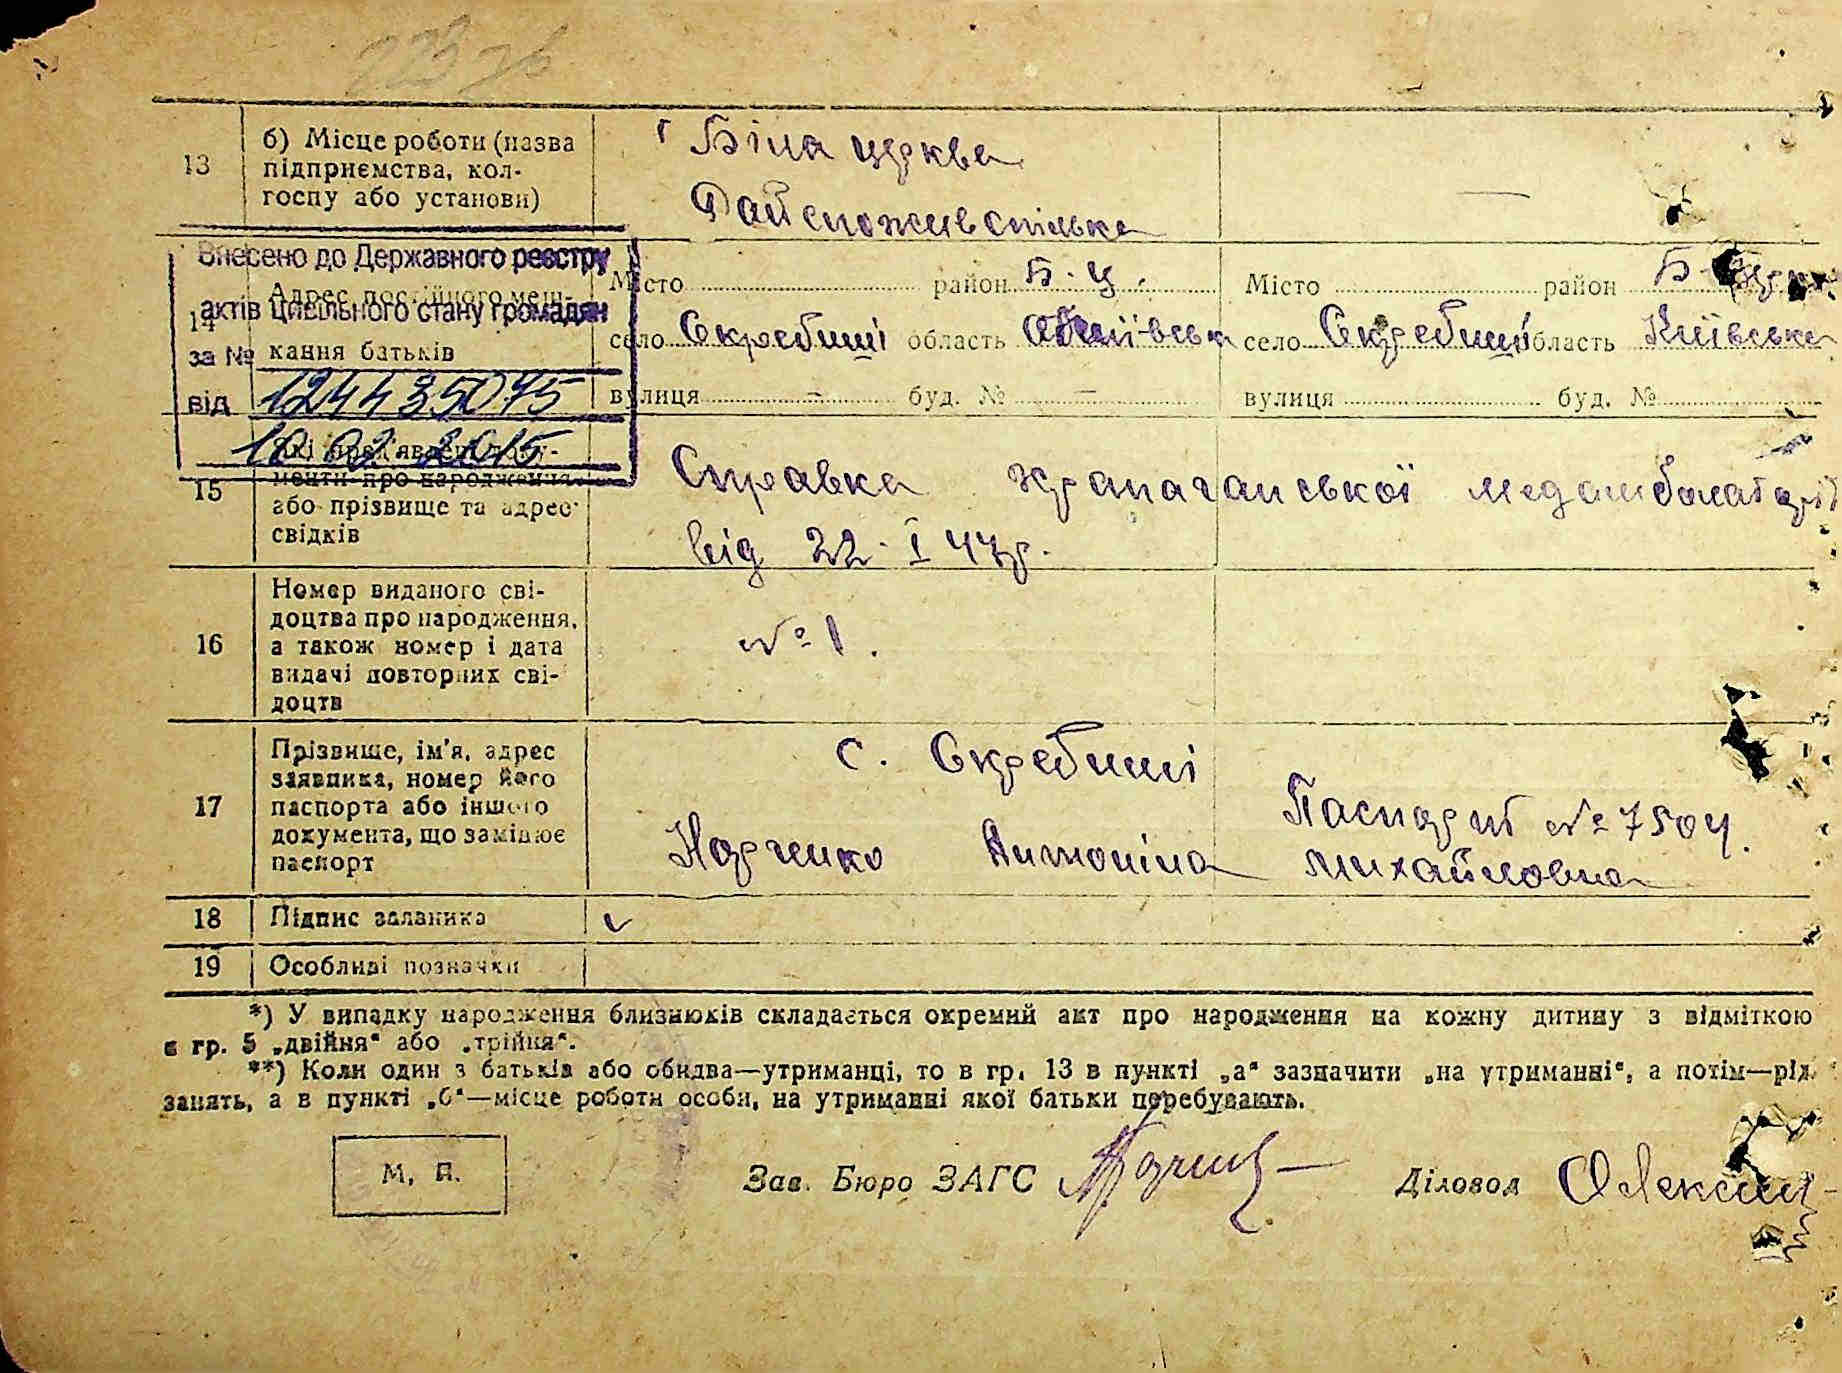 223
13
б) Місце роботи (назва
підприємства, кол-
госпу або установи)
г Біла церква
Райспоживспілка
—
Внесено до Державного реєстру
актів цивільного стану громадян
за №
від 1244435075
10.02.2015
14
Адрес постійного меш-
кання батьків
Місто район Б. Ц.
село Скребиші область Київськ
вулиця – буд. № –
Місто район Б.
село Скребиші область Київська
вулиця буд. №
15
Які пред'явлені доку-
менти про народження
або прізвище та адрес
свідків
Справка медамбулаторії
від 22. I 47р.
16
Номер виданого сві-
доцтва про народження,
а також номер і дата
видачі повторних сві-
доцтв
№ 1.
17
Прізвище, ім'я, адрес
заявника, номер його
паспорта або іншого
документа, що замінює
паспорт
с. Скребиші
Паспорт № 7504.
Антоніна Михайловна
18 Підпис заявника
19 Особливі позначки
*) У випадку народження близнюків складається окремий акт про народження на кожну дитину з відміткою
в гр. 5 „двійня“ або „трійня“.
**) Коли один з батьків або обидва—утриманці, то в гр. 13 в пункті „а“ зазначити „на утриманні“, а потім—рід
занять, а в пункті „б“—місце роботи особи, на утриманні якої батьки перебувають.
М. П.
Зав. Бюро ЗАГС
Діловод